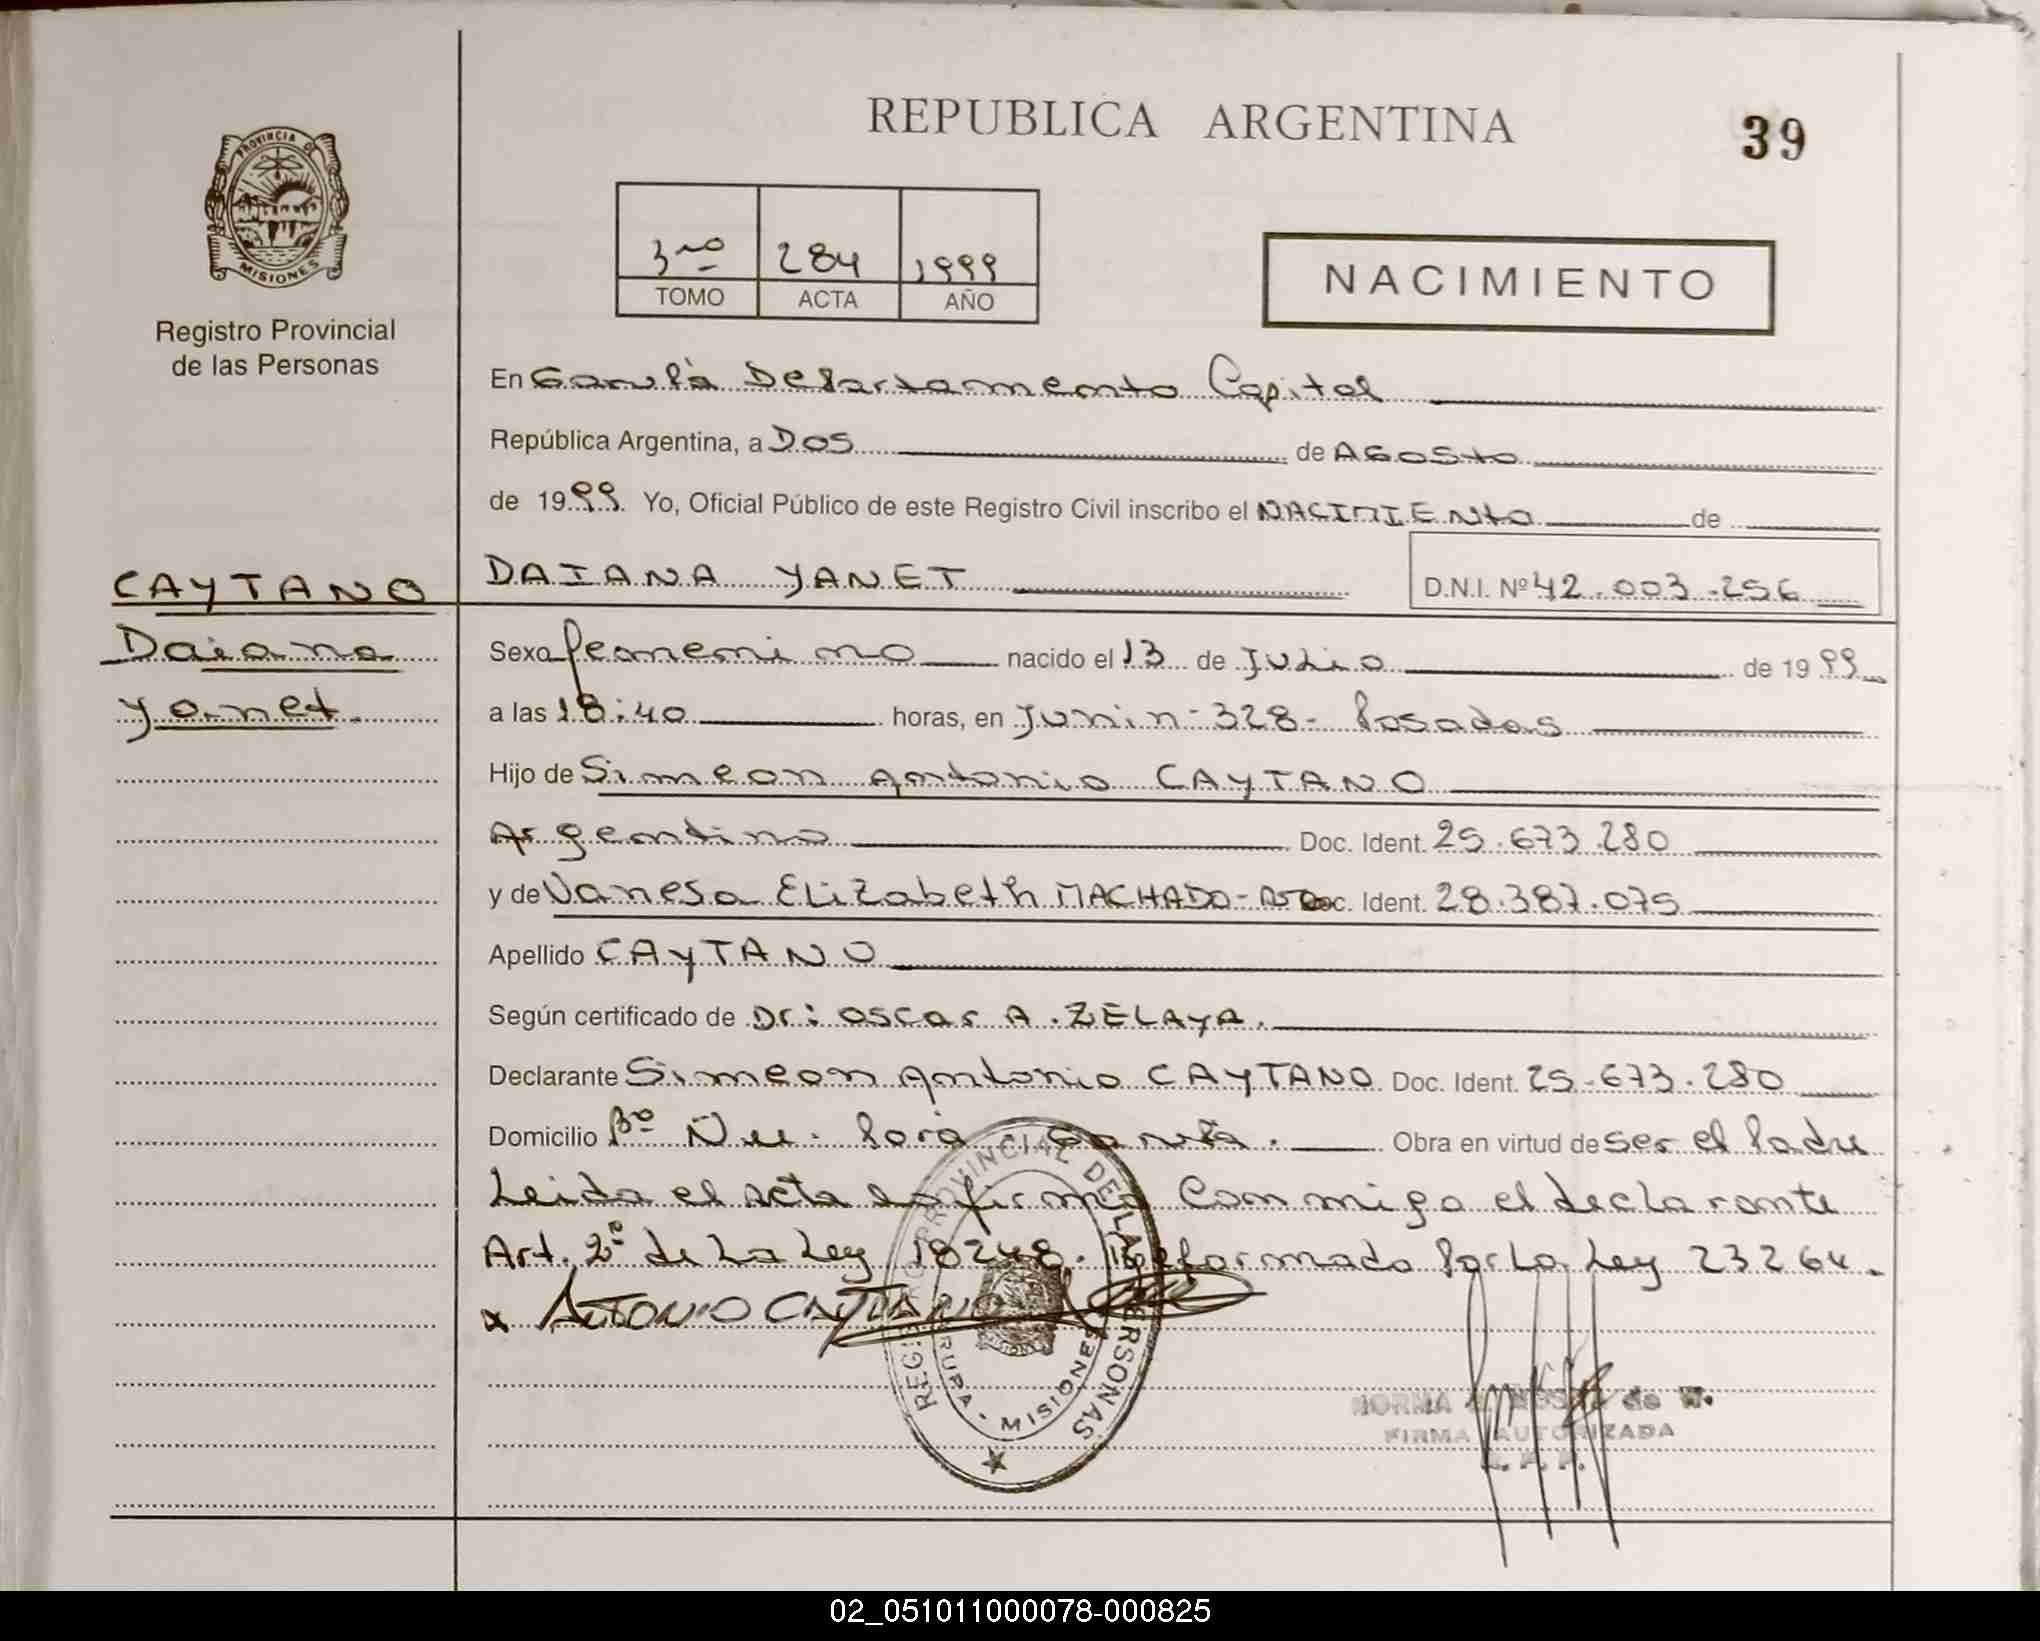 REPUBLICA ARGENTINA
39
PROVINCIA DE
MISIONES
Registro Provincial
de las Personas
3ro 284 1999
TOMO ACTA AÑO
NACIMIENTO
En Garupá Departamento Capital
República Argentina, a DOS de AGOSTO
de 1999 Yo, Oficial Público de este Registro Civil inscribo el NACIMIENTO de
CAYTANO
Daiana
Yanet.
DAIANA YANET D.N.I. Nº 42.003.256
Sexo femenino nacido el 13 de Julio de 1999
a las 18:40 horas, en Junin - 328 - Posadas
Hijo de Simeon Antonio CAYTANO
Argentino Doc. Ident. 25.673.280
y de Vanesa Elizabeth MACHADO - Doc. Ident. 28.387.075
Apellido CAYTANO
Según certificado de Dr: Oscar A. ZELAYA.
Declarante Simeon Antonio CAYTANO Doc. Ident. 25-673.280
Domicilio Bº Ñu Porá Garupá. Obra en virtud de ser el Padre
Leida el acta la firma Conmigo el declarante
Art. 2º de La Ley 18248. Reformado Por La Ley 23264.
x ANTONIO CAYTANO
REGISTRO PROVINCIAL DE LAS PERSONAS
GARUPA - MISIONES
NORMA de
FIRMA AUTORIZADA
02_051011000078-000825